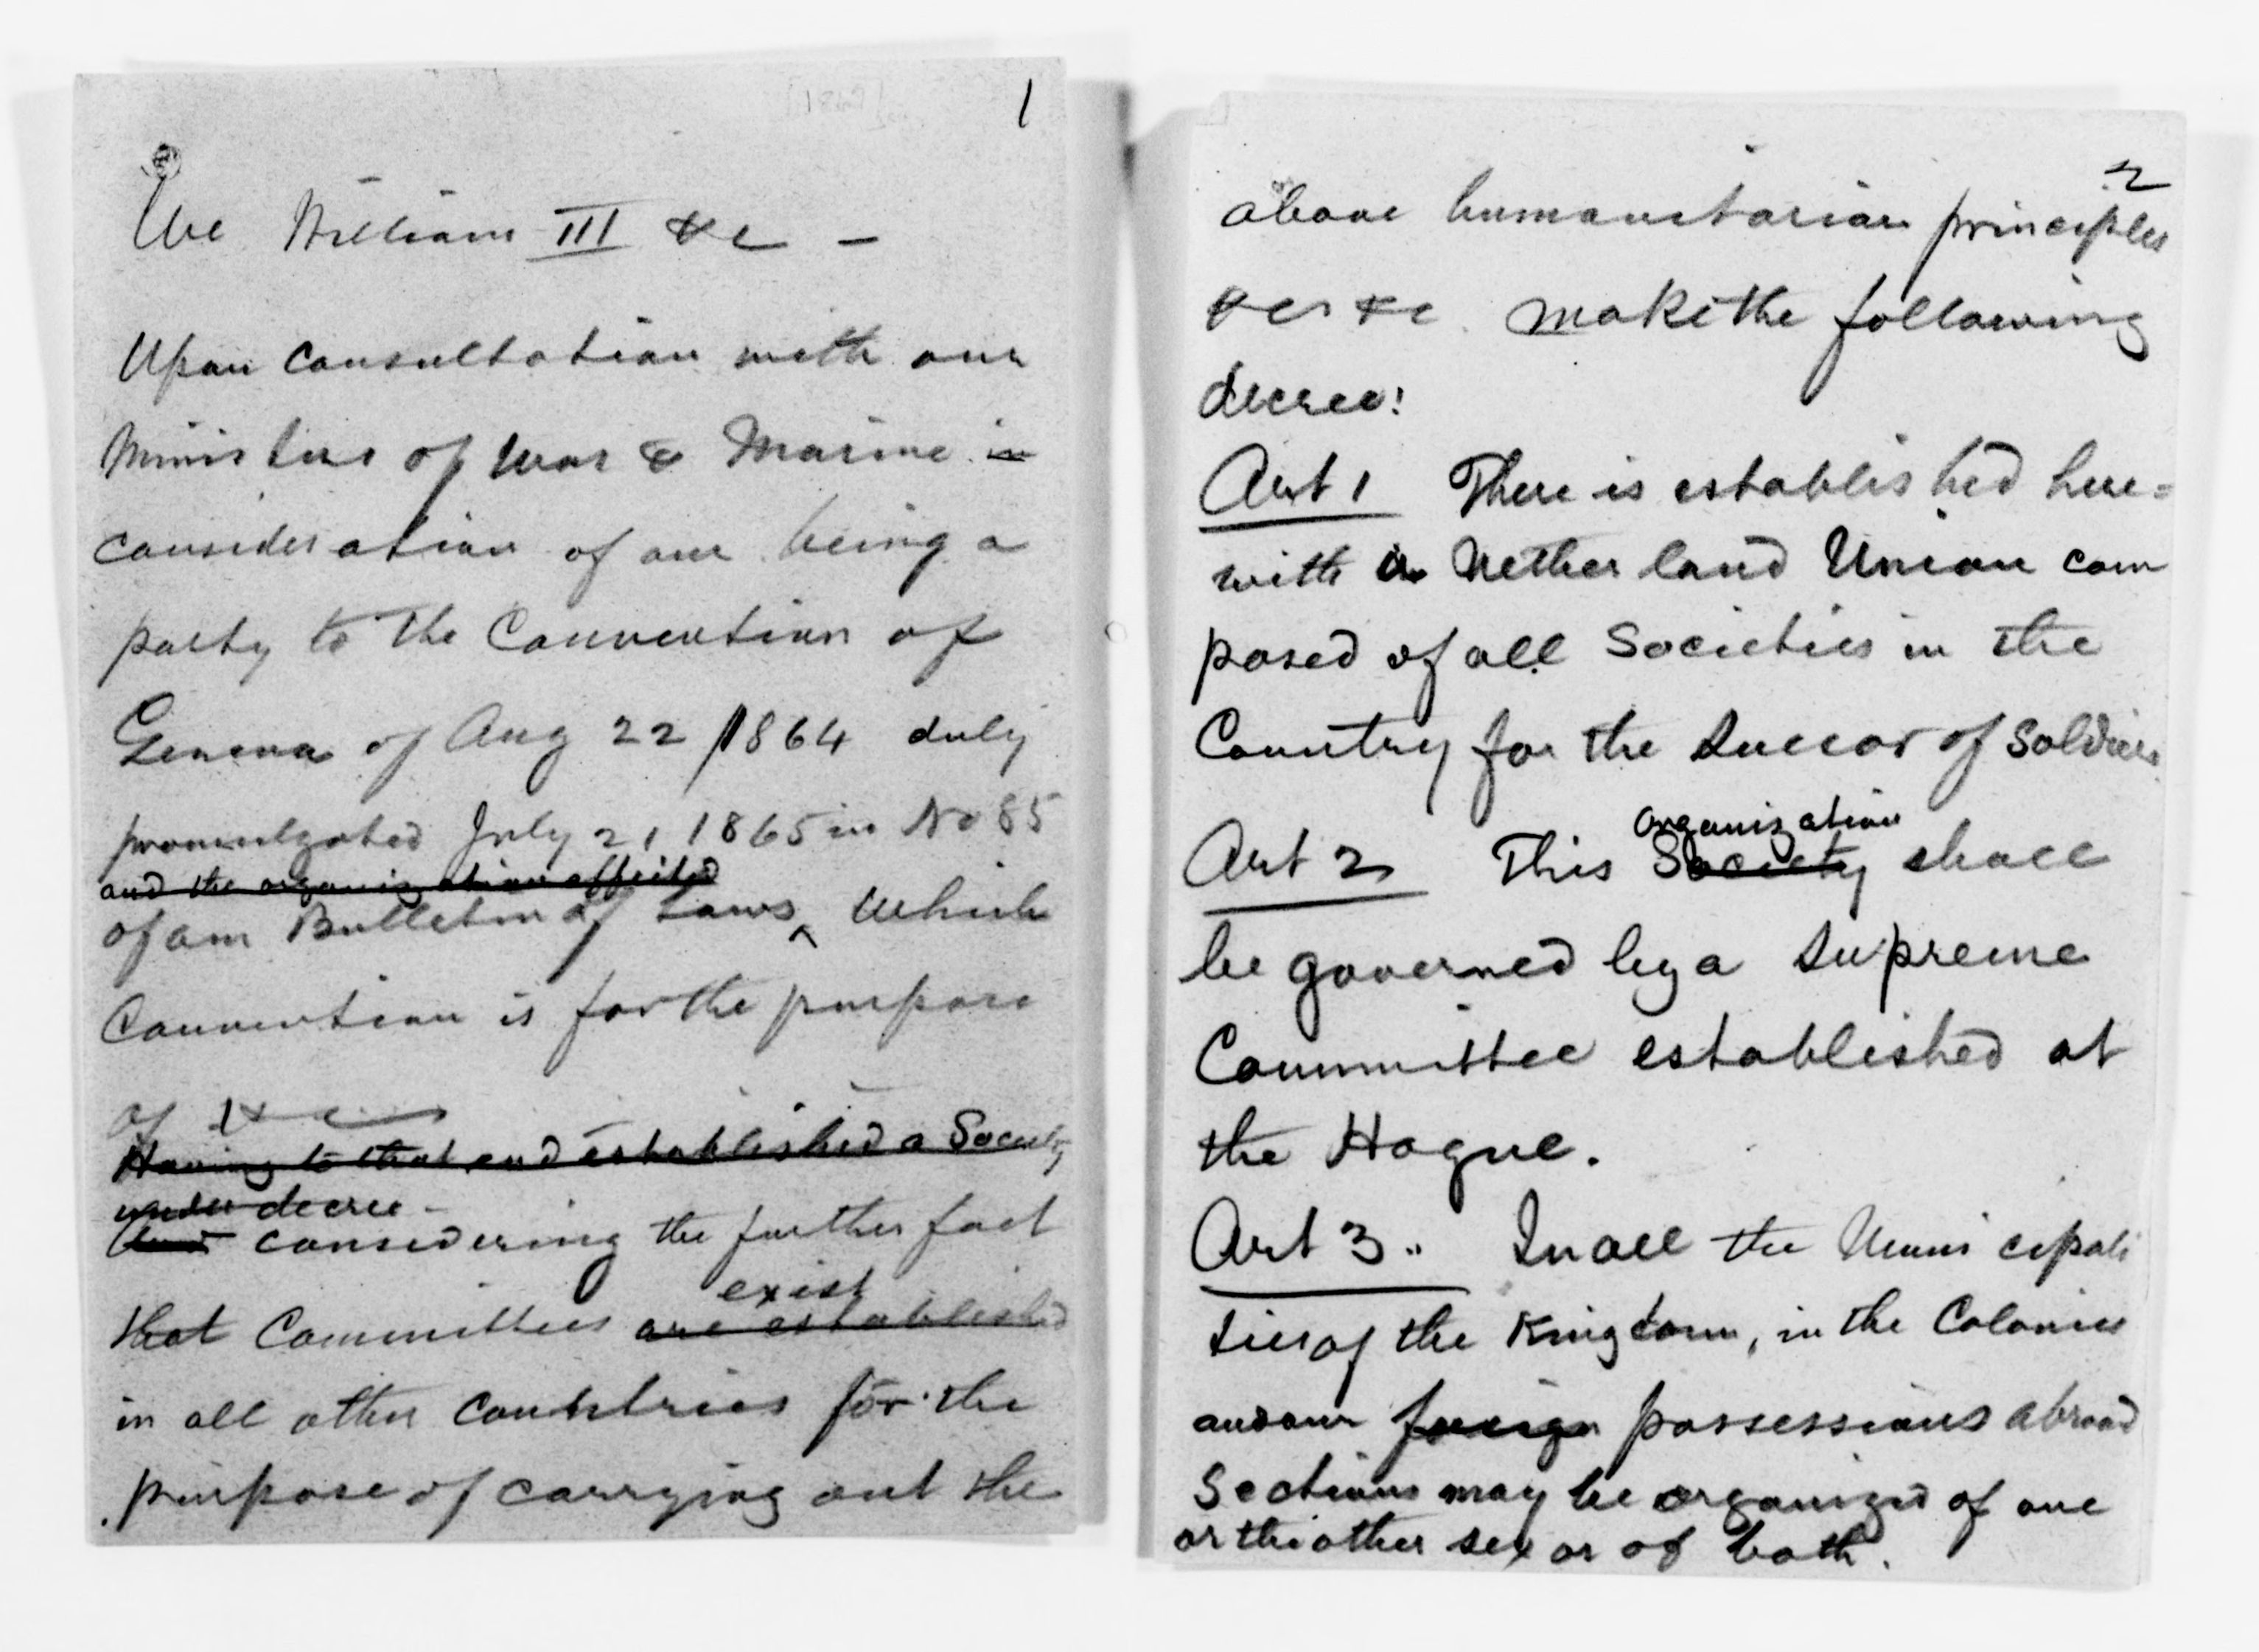 [1867]
1
We William III &c —
Upon consultation with our
Ministers of War & Marine in
consideration of our being a
party to the Convention of
Geneva of Aug 22 / 1864 duly
promulgated July 21 1865 in No 85
and the organization affected
of our Bulletin of Laws ^ Which
Convention is for the purpose
of &c
Having to that end established a Society
under decree -
And considering the further fact
exist
that Committees are established
in all other countries for the
purpose of carrying out the
2
above humanitarian principles
&c &c make the following
decree:
Art 1 There is established here=
with a Netherland Union com
posed of all Societies in the
Country for the Succor of Soldiers
organization
Art 2 This Society shall
be governed by a Supreme
Committee established at
the Hague.
Art 3.. In all the Municipali
ties of the Kingdom, in the Colonies
and our foreign possessions abroad
Sections may be organized of one
or the other sex or of both.